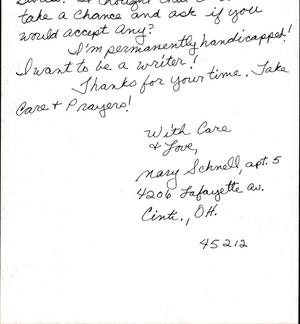 take a chance and ask if you
would accept any?
I'm permanently handicapped!
I want to be a writer!
Thanks for your time. Take
Care & Prayers!
With Care
& Love,
Mary Schnell, apt. 5
4206 Lafayette Av.
Cinti., OH.
45212